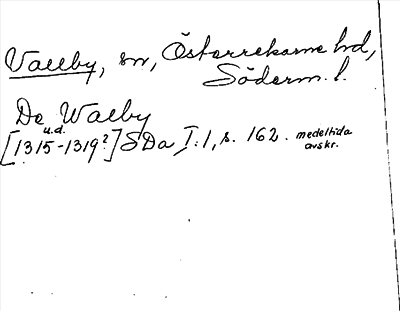 Vallby, sn, Österrekarne hd,
Söderm. l.
De Walby
u.d.
[1315-1319?] SDa I:1, s. 162. medeltida
avskr.